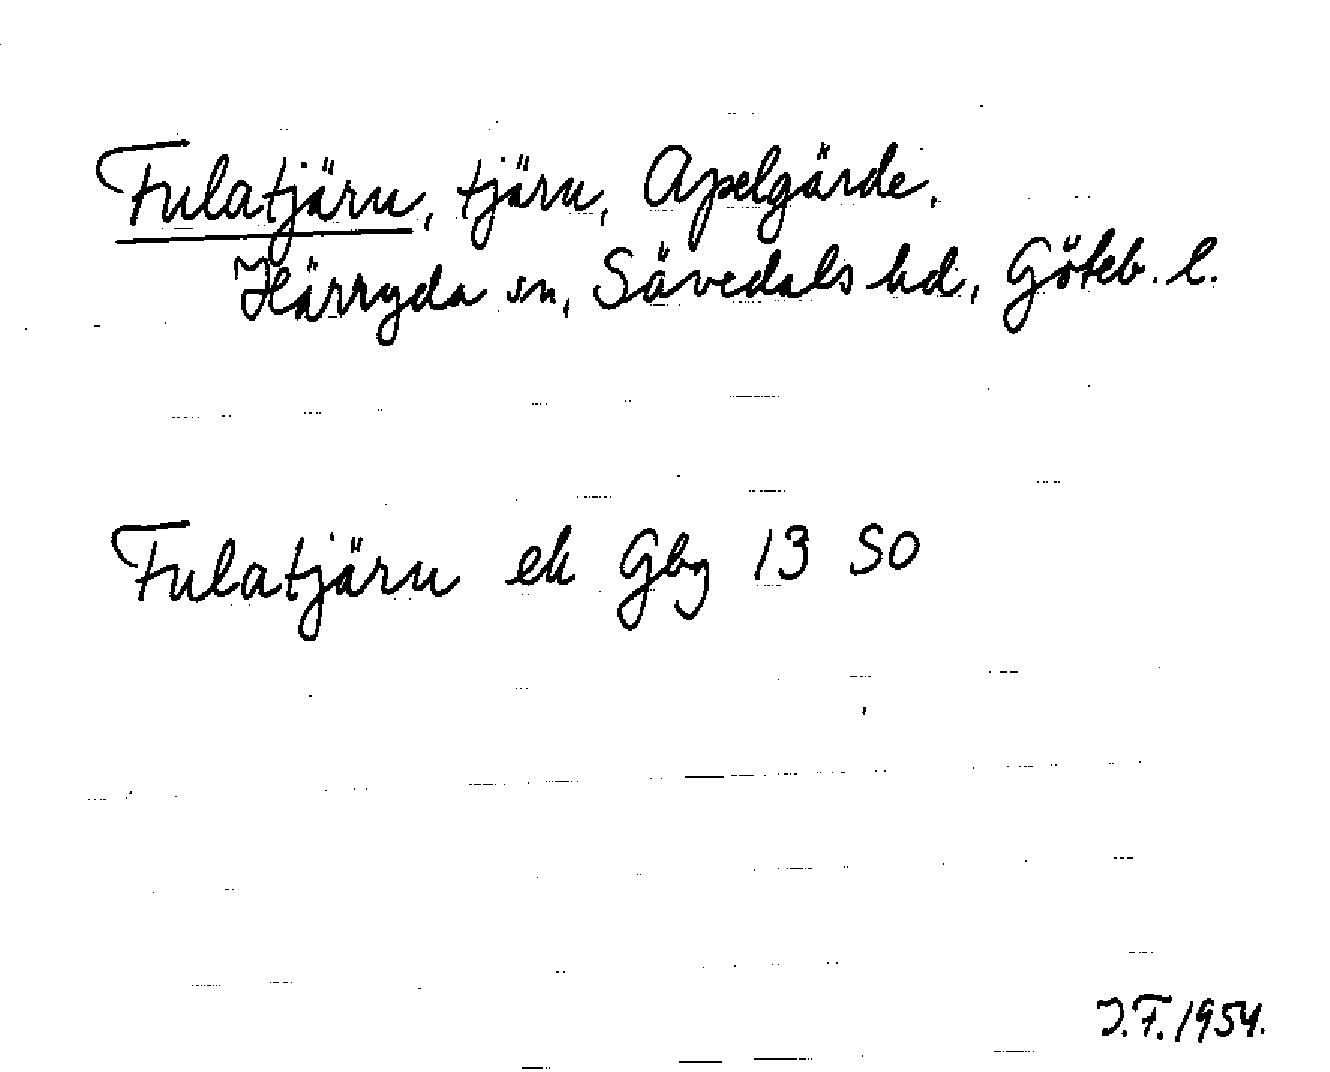 Fulatjärn, tjärn, Apelgärde,
Härryda sn, Sävedals hd, Göteb. l.
Fulatjärn ek Gbg 13 SO
J.F. 1954.